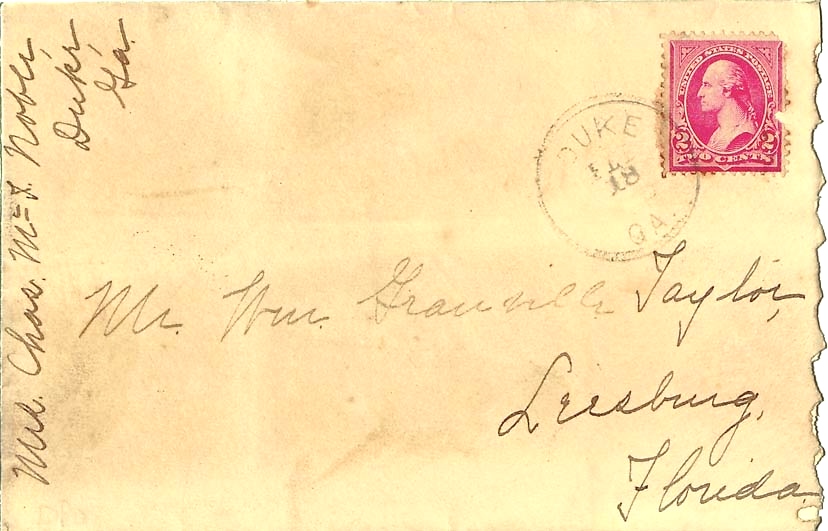 Mrs. Chas. Mc=I. Noble,
Duke,
Ga.
UNITED STATES POSTAGE
2 2
TWO CENTS
DUKE
18
GA.
Mr. Wm. Granville Taylor,
Leesburg,
Florida